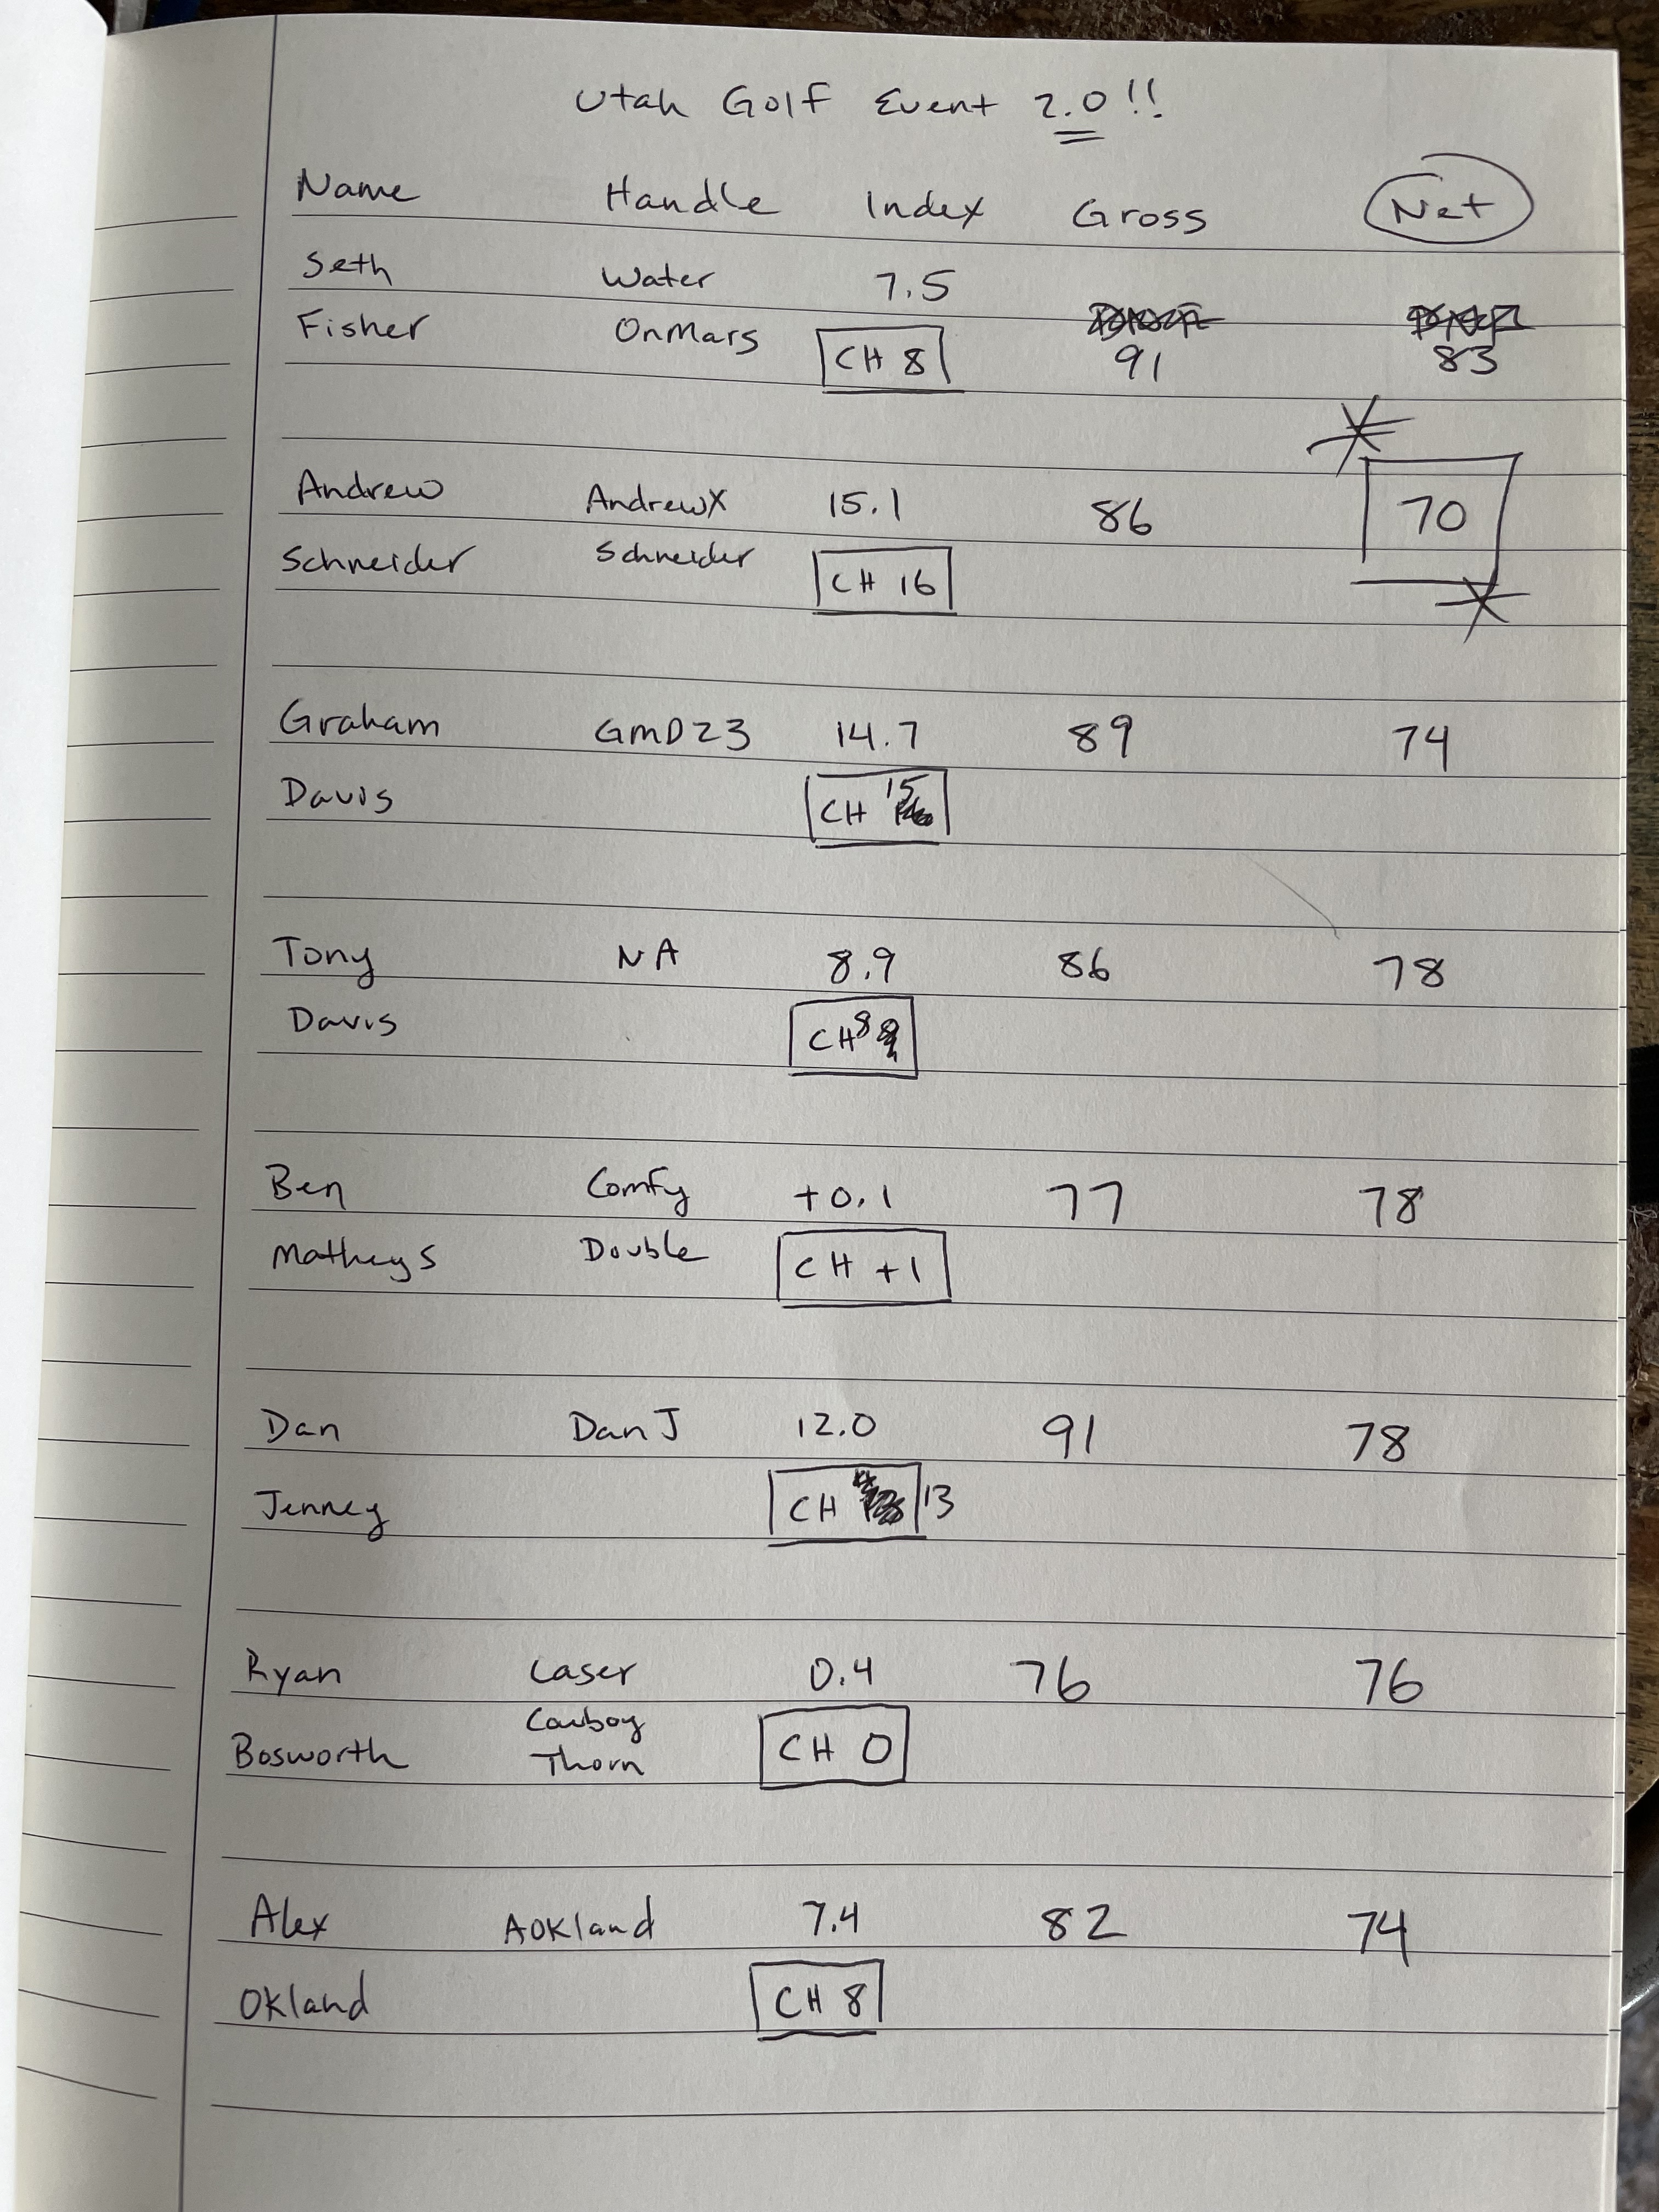 Utah Golf Event 2.0!!
Name Handle Index Gross Net
Seth Water 7.5
Fisher OnMars CH 8 91 83
Andrew AndrewX 15.1 86 70
Schneider Schneider CH 16
Graham GMD23 14.7 89 74
Davis CH 15
Tony NA 8.9 86 78
Davis CH 8
Ben Comfy +0.1 77 78
Matheys Double CH +1
Dan DanJ 12.0 91 78
Jenney CH 13
Ryan Laser 0.4 76 76
Cowboy
Bosworth Thorn CH 0
Alex AOKland 7.4 82 74
Okland CH 8